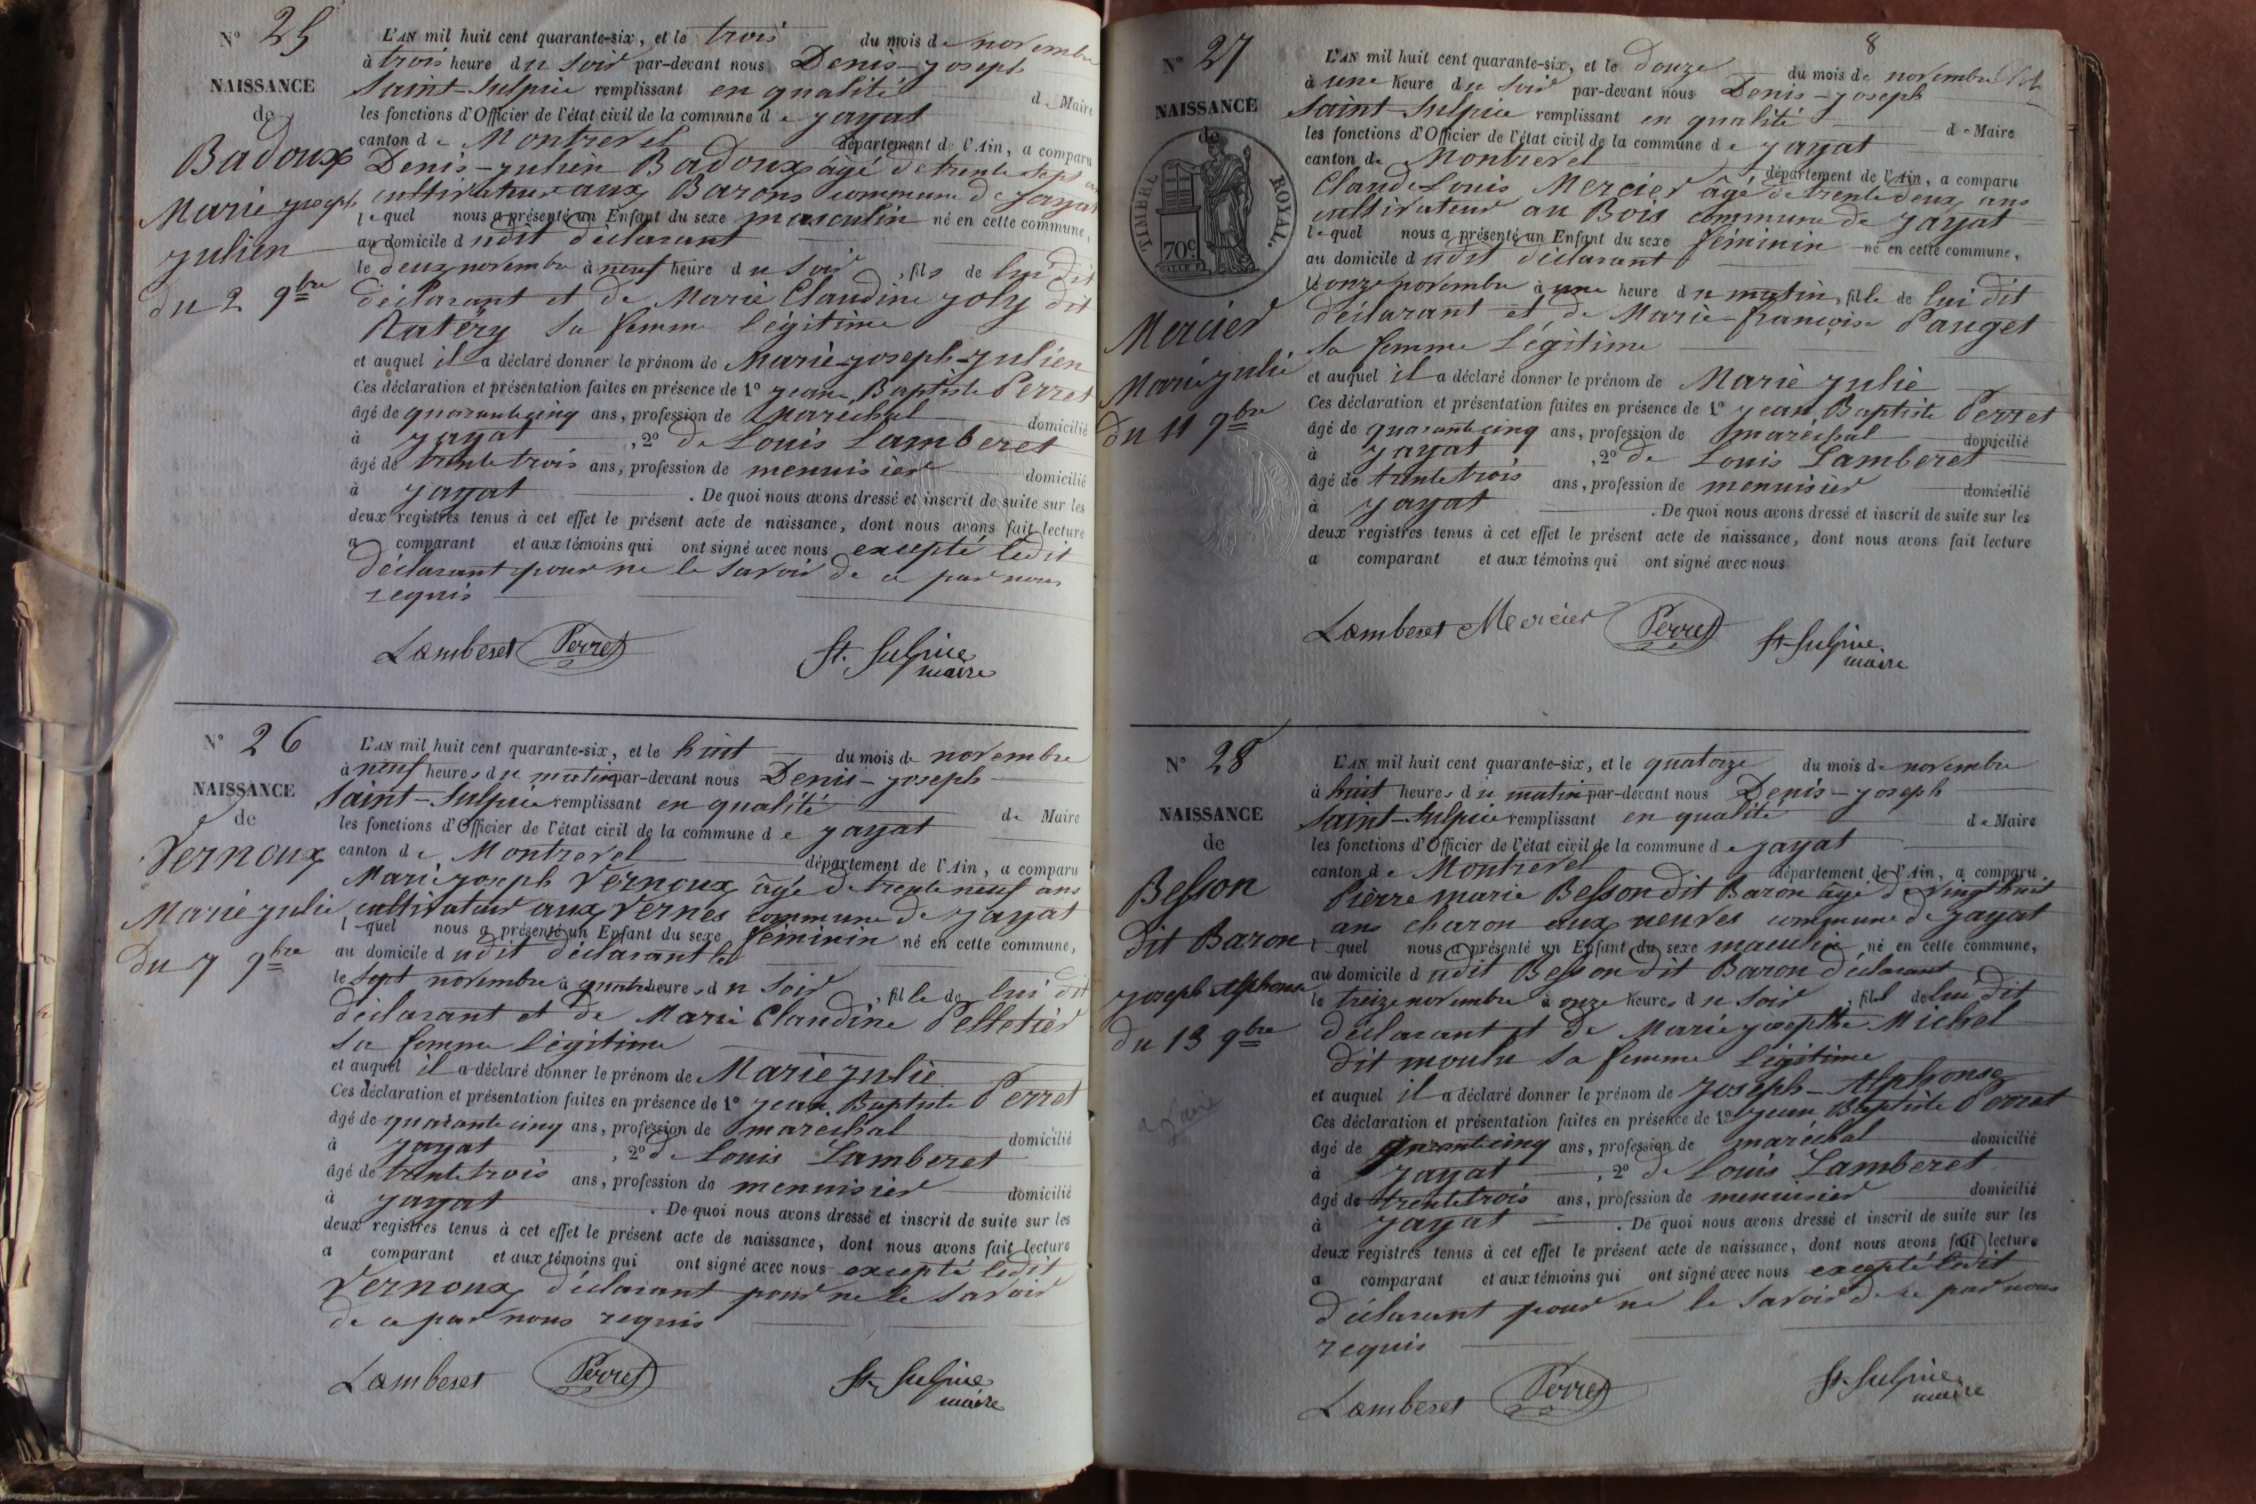 N° 25
NAISSANCE
de
Badoux
Marie joseph
julien
du 2 9bre
L'AN mil huit cent quarante-six, et le trois du mois de novembre
à trois heure du soir par-devant nous Denis-joseph
Saint-Sulpice remplissant en qualité de Maire
les fonctions d'Officier de l'état civil de la commune de jayat
canton de Montrevel département de l'Ain, a comparu
Denis-julien Badoux âgé de trente sept ans
cultivateur aux Barons commune de jayat
lequel nous a présenté un Enfant du sexe masculin né en cette commune,
au domicile dudit déclarant
le deux novembre à neuf heure du soir, fils de lui dit
déclarant et de Marie Claudine joly dit
Ratéry sa femme légitime
et auquel il a déclaré donner le prénom de Marie-joseph-julien
Ces déclaration et présentation faites en présence de 1° jean Baptiste Perret
âgé de quarante cinq ans, profession de maréchal domicilié
à jayat, 2° de Louis Lamberet
âgé de trente trois ans, profession de menuisier domicilié
à jayat. De quoi nous avons dressé et inscrit de suite sur les
deux registres tenus à cet effet le présent acte de naissance, dont nous avons fait lecture
a comparant et aux témoins qui ont signé avec nous excepté ledit
déclarant pour ne le savoir de ce par nous
requis
Lamberet Perret St. Sulpice
maire
N° 26
NAISSANCE
de
Vernoux
Marie julie
du 7 9bre
L'AN mil huit cent quarante-six, et le huit du mois de novembre
à neuf heures du matin par-devant nous Denis-joseph
Saint-Sulpice remplissant en qualité de Maire
les fonctions d'Officier de l'état civil de la commune de jayat
canton de Montrevel département de l'Ain, a comparu
Marie joseph Vernoux âgé de trente neuf ans
cultivateur aux Vernes commune de jayat
lequel nous a présenté un Enfant du sexe féminin né en cette commune,
au domicile dudit déclarant
le sept novembre à quatre heures du soir, fille de lui dit
déclarant et de Marie Claudine Pelletier
sa femme légitime
et auquel il a déclaré donner le prénom de Marie julie
Ces déclaration et présentation faites en présence de 1° jean Baptiste Perret
âgé de quarante cinq ans, profession de maréchal domicilié
à jayat, 2° de Louis Lamberet
âgé de trente trois ans, profession de menuisier domicilié
à jayat. De quoi nous avons dressé et inscrit de suite sur les
deux registres tenus à cet effet le présent acte de naissance, dont nous avons fait lecture
a comparant et aux témoins qui ont signé avec nous excepté ledit
Vernoux déclarant pour ne le savoir
de ce par nous requis
Lamberet Perret St. Sulpice
maire
8
N° 27
NAISSANCE
de
TIMBRE ROYAL.
70c
Mercier
Marie julie
du 11 9bre
L'AN mil huit cent quarante-six, et le douze du mois de novembre
à une heure du soir par-devant nous Denis-joseph
Saint-Sulpice remplissant en qualité de Maire
les fonctions d'Officier de l'état civil de la commune de jayat
canton de Montrevel département de l'Ain, a comparu
Claude Louis Mercier âgé de trente deux ans
cultivateur au Bois commune de jayat
lequel nous a présenté un Enfant du sexe féminin né en cette commune,
au domicile dudit déclarant
le onze novembre à une heure du matin, fille de lui dit
déclarant et de Marie-françoise Pauget
sa femme légitime
et auquel il a déclaré donner le prénom de Marie julie
Ces déclaration et présentation faites en présence de 1° jean Baptiste Perret
âgé de quarante cinq ans, profession de maréchal domicilié
à jayat, 2° de Louis Lamberet
âgé de trente trois ans, profession de menuisier domicilié
à jayat. De quoi nous avons dressé et inscrit de suite sur les
deux registres tenus à cet effet le présent acte de naissance, dont nous avons fait lecture
a comparant et aux témoins qui ont signé avec nous
Lamberet Mercier Perret St-Sulpice
maire
N° 28
NAISSANCE
de
Besson
dit Baron
joseph Alphonse
du 13 9bre
L'AN mil huit cent quarante-six, et le quatorze du mois de novembre
à huit heures du matin par-devant nous Denis-joseph
Saint-Sulpice remplissant en qualité de Maire
les fonctions d'Officier de l'état civil de la commune de jayat
canton de Montrevel département de l'Ain, a comparu
Pierre marie Besson dit Baron âgé de vingt huit
ans charon aux neuves commune de jayat
lequel nous a présenté un Enfant du sexe masculin né en cette commune,
au domicile dudit Besson dit Baron déclarant
le treize novembre à onze heures du soir, fils de lui dit
déclarant et de Marie josephte Michel
dit moulu sa femme légitime
et auquel il a déclaré donner le prénom de joseph-Alphonse
Ces déclaration et présentation faites en présence de 1° jean Baptiste Perret
âgé de quarante cinq ans, profession de maréchal domicilié
à jayat, 2° de Louis Lamberet
âgé de trente trois ans, profession de menuisier domicilié
à jayat. De quoi nous avons dressé et inscrit de suite sur les
deux registres tenus à cet effet le présent acte de naissance, dont nous avons fait lecture
a comparant et aux témoins qui ont signé avec nous excepté ledit
déclarant pour ne le savoir de ce par nous
requis
Lamberet Perret St. Sulpice
maire